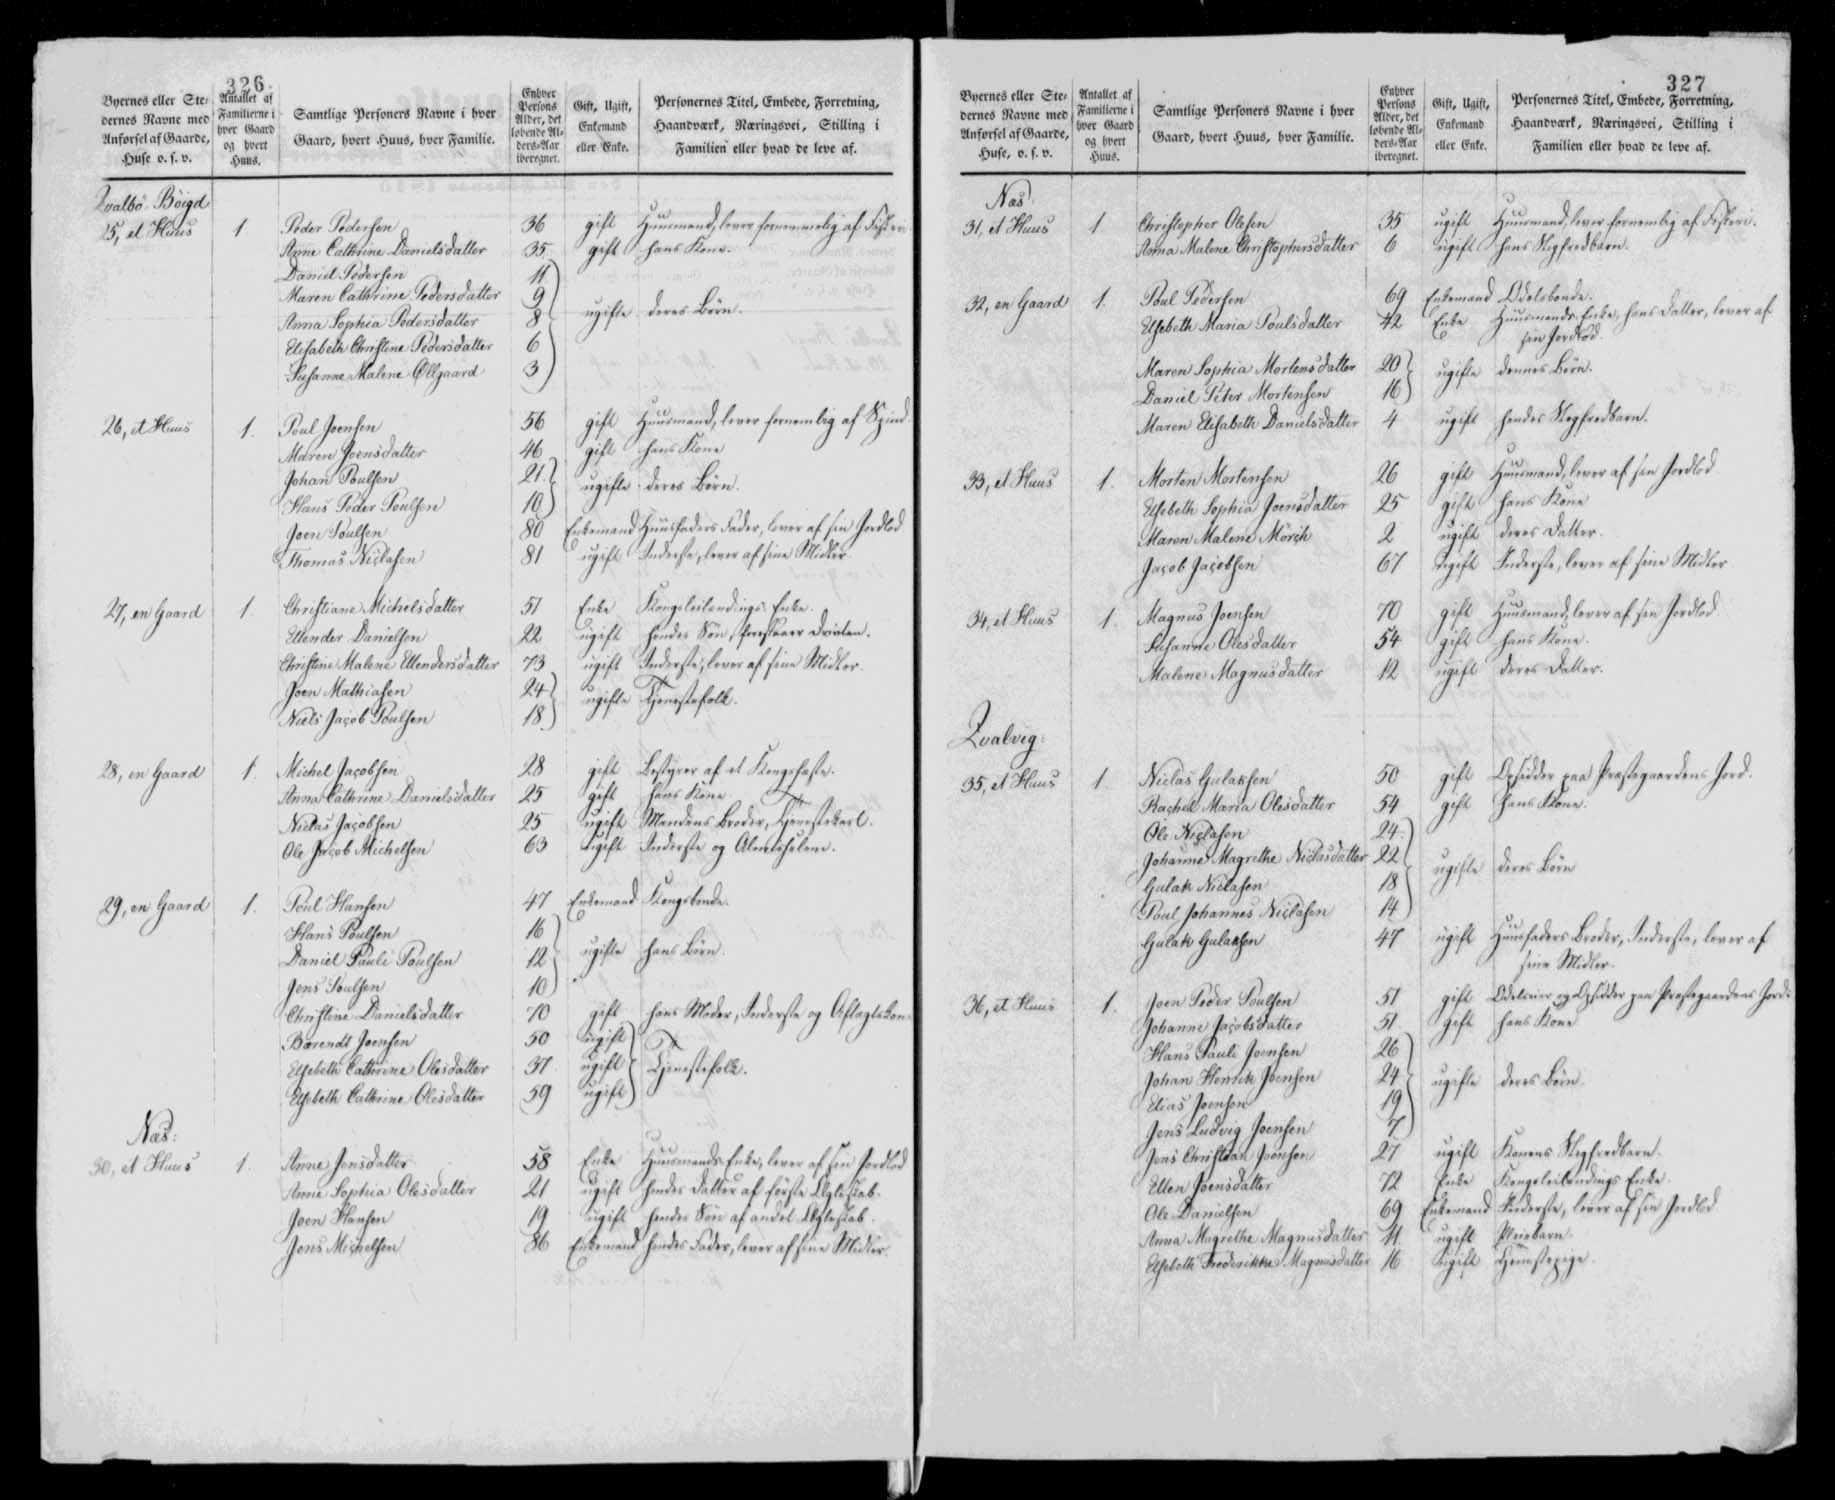 326.
Byernes eller Stedernes Navne med Anførsel af Gaarde, Huse o. s. v. | Antallet af Familierne i hver Gaard og hvert Huus. | Samtlige Personers Navne i hver Gaard, hvert Huus, hver Familie. | Enhver Persons Alder, det løbende Alders-Aar iberegnet. | Gift, Ugift, Enkemand eller Enke. | Personernes Titel, Embede, Forretning, Haandværk, Næringsvei, Stilling i Familien eller hvad de leve af.
Qvalbö Böigd
25, et Huus 1. Peder Pedersen 36 gift Huusmand, lever fornemmelig af Fiskeri
Anne Cathrine Danielsdatter 35 gift hans Kone.
Daniel Pedersen 11
Maren Cathrine Pedersdatter 9
Anna Sophia Pedersdatter 8 ugifte deres Börn.
Elisabeth Christine Pedersdatter 6
Susanne Malene Øllgaard 3
26, et Huus 1. Poul Joensen 56 gift Huusmand, lever fornemlig af Spind.
Maren Joensdatter 46 gift hans Kone
Johan Poulsen 21
Hans Peder Poulsen 10 ugifte deres Börn.
Joen Poulsen 80 Enkemand Huusfaders Fader, lever af sin Jordlod
Thomas Niclasen 81 ugift Inderste, lever af sine Midler.
27, en Gaard 1. Christiane Michelsdatter 51 Enke Kongsleilendings Enke.
Ellender Danielsen 22 ugift hendes Sön, forestaaer Driften.
Christine Malene Ellendersdatter 73 ugift Inderste, lever af sine Midler.
Joen Mathiasen 24
Niels Jacob Poulsen 18 ugifte Tjenestefolk.
28, en Gaard 1. Michel Jacobsen 28 gift Bestyrer af et Kongsfæste.
Anna Cathrine Danielsdatter 25 gift hans Kone
Niclas Jacobsen 25 ugift Mandens Broder, Tjenestekarl.
Ole Jacob Michelsen 63 ugift Inderste og Almisselem.
29, en Gaard 1. Poul Hansen 47 Enkemand Kongsbonde.
Hans Poulsen 16
Daniel Pauli Poulsen 12 ugifte hans Börn.
Jens Poulsen 10
Christine Danielsdatter 70 gift hans Moder, Inderste og Aftægtskone
Barendt Joensen 50 ugift
Elsebeth Cathrine Olesdatter 37 ugift Tjenestefolk.
Elsebeth Cathrine Olesdatter 59 ugift
Næs:
30, et Huus 1. Anne Jensdatter 58 Enke Huusmands Enke, lever af sin Jordlod
Anne Sophia Olesdatter 21 ugift hendes Datter af förste Ægteskab.
Joen Hansen 19 ugift hendes Sön af andet Ægteskab.
Jens Michelsen 86 Enkemand hendes Fader, lever af sine Midler.
327
Byernes eller Stedernes Navne med Anførsel af Gaarde, Huse, o. s. v. | Antallet af Familierne i hver Gaard og hvert Huus. | Samtlige Personers Navne i hver Gaard, hvert Huus, hver Familie. | Enhver Persons Alder, det løbende Alders-Aar iberegnet. | Gift, Ugift, Enkemand eller Enke. | Personernes Titel, Embede, Forretning, Haandværk, Næringsvei, Stilling i Familien eller hvad de leve af.
Næs
31, et Huus 1 Christopher Olesen 35 ugift Huusmand, lever fornemlig af Fiskeri.
Anna Malene Christophersdatter 6 ugift hans Slegfredbarn.
32, en Gaard 1. Poul Pedersen 69 Enkemand Odelsbonde.
Elsebeth Maria Poulsdatter 42 Enke Huusmands Enke, hans Datter, lever af
sin Jordlod.
Maren Sophia Mortensdatter 20
Daniel Peter Mortensen 16 ugifte dennes Börn.
Maren Elisabeth Danielsdatter 4 ugift hendes Slegfredbarn.
33, et Huus 1. Morten Mortensen 26 gift Huusmand, lever af sin Jordlod
Elsebeth Sophia Joensdatter 25 gift hans Kone
Maren Malene Mörch 2 ugift deres Datter.
Jacob Jacobsen 67 ugift Inderste, lever af sine Midler
34, et Huus 1. Magnus Joensen 70 gift Huusmand, lever af sin Jordlod.
Susanne Olesdatter 54 gift hans Kone.
Malene Magnusdatter 12 ugift deres Datter.
Qvalvig:
35, et Huus 1. Niclas Gulaksen 50 gift Opsidder paa Præstegaardens Jord.
Rachel Maria Olesdatter 54 gift hans Kone.
Ole Niclasen 24
Johanne Magrethe Niclasdatter 22
Gulak Niclasen 18 ugifte deres Börn
Poul Johannes Niclasen 14
Gulak Gulaksen 47 ugift Huusfaders Broder, Inderste, lever af
sine Midler.
36, et Huus 1. Joen Peder Poulsen 51 gift Odelseier og Opsidder paa Præstegaardens Jord.
Johanne Jacobsdatter 51 gift hans Kone
Hans Pauli Joensen 26
Johan Henrik Joensen 24
Elias Joensen 19 ugifte deres Börn.
Jens Ludvig Joensen 7
Jens Christian Joensen 27 ugift Konens Slegfredbarn.
Ellen Joensdatter 72 Enke Kongsleilendings Enke.
Ole Danielsen 69 Enkemand Inderste, lever af sin Jordlod
Anna Magrethe Magnusdatter 11 ugift Pleiebarn.
Elsebeth Frederikke Magnusdatter 16 ugift Tjenestepige.